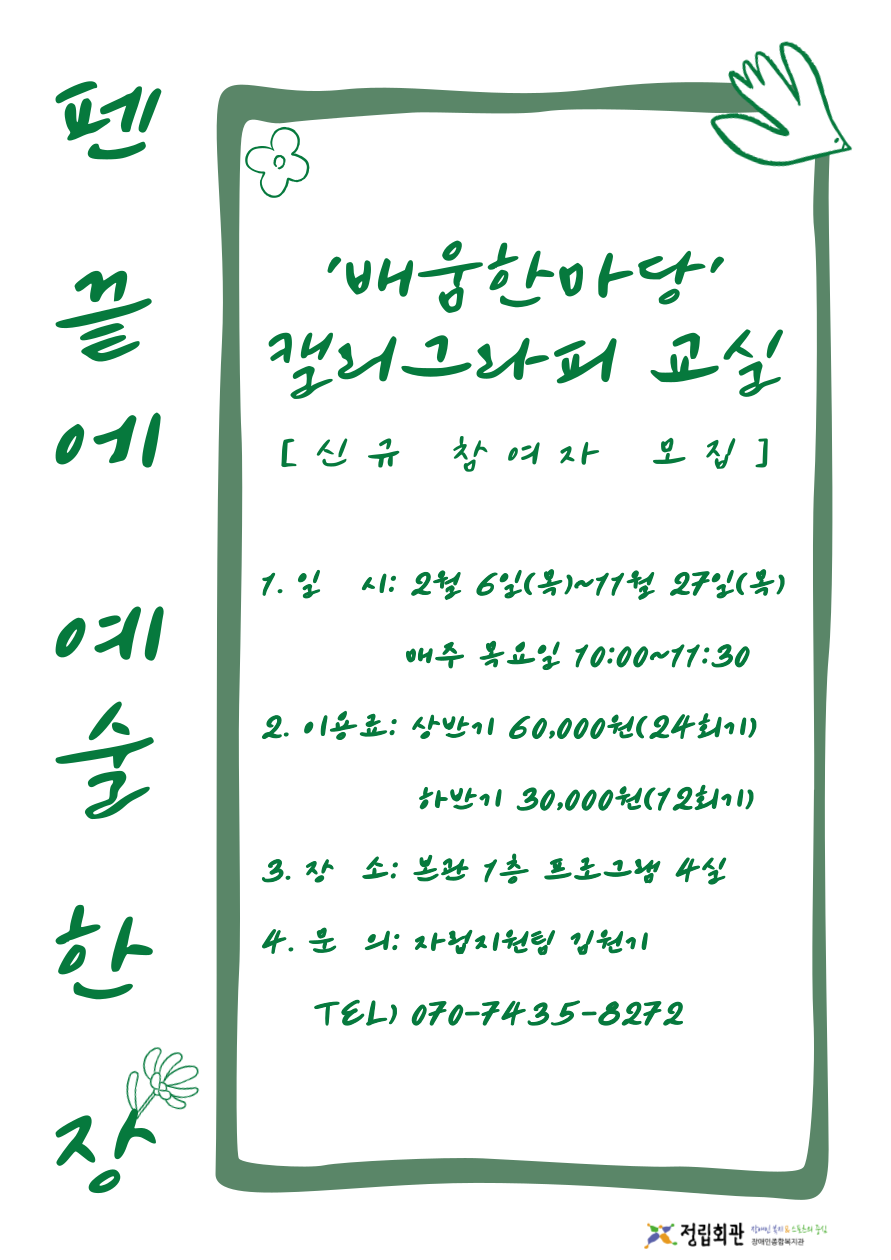 펜 끝에 예술 한 장
'배움한마당'
캘리그라피 교실
[신규 참여자 모집]
1. 일 시: 2월 6일(목)~11월 27일(목)
매주 목요일 10:00~11:30
2. 이용료: 상반기 60,000원(24회기)
하반기 30,000원(12회기)
3. 장 소: 본관 1층 프로그램 4실
4. 문 의: 자립지원팀 김원기
TEL) 070-7435-8272
정립회관
장애인 복지 & 스포츠의 중심
장애인종합복지관